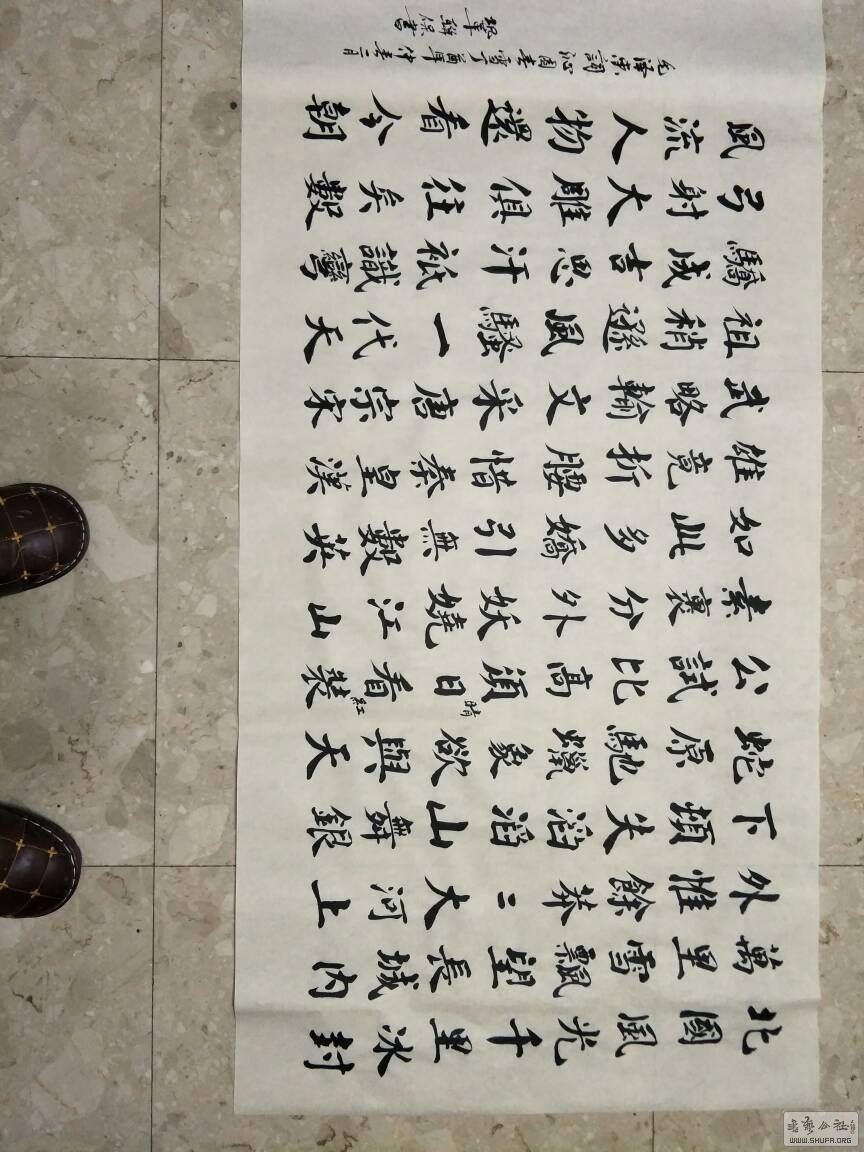 北國風光千里冰封
萬里雪飄望長城內
外惟餘莽二大河上
下頓失滔滔山舞銀
蛇原馳蠟象欲與天
公試比高須晴日看紅裝
素裹分外妖嬈江山
如此多嬌引無數英
雄竟折腰惜秦皇漢
武略輸文采唐宗宋
祖稍遜風騷一代天
驕成吉思汗祇識彎
弓射大雕俱往矣數
風流人物還看今朝
毛澤東詞沁園春雪丁酉年仲春二月
聯保書
WWW.SHUFA.ORG